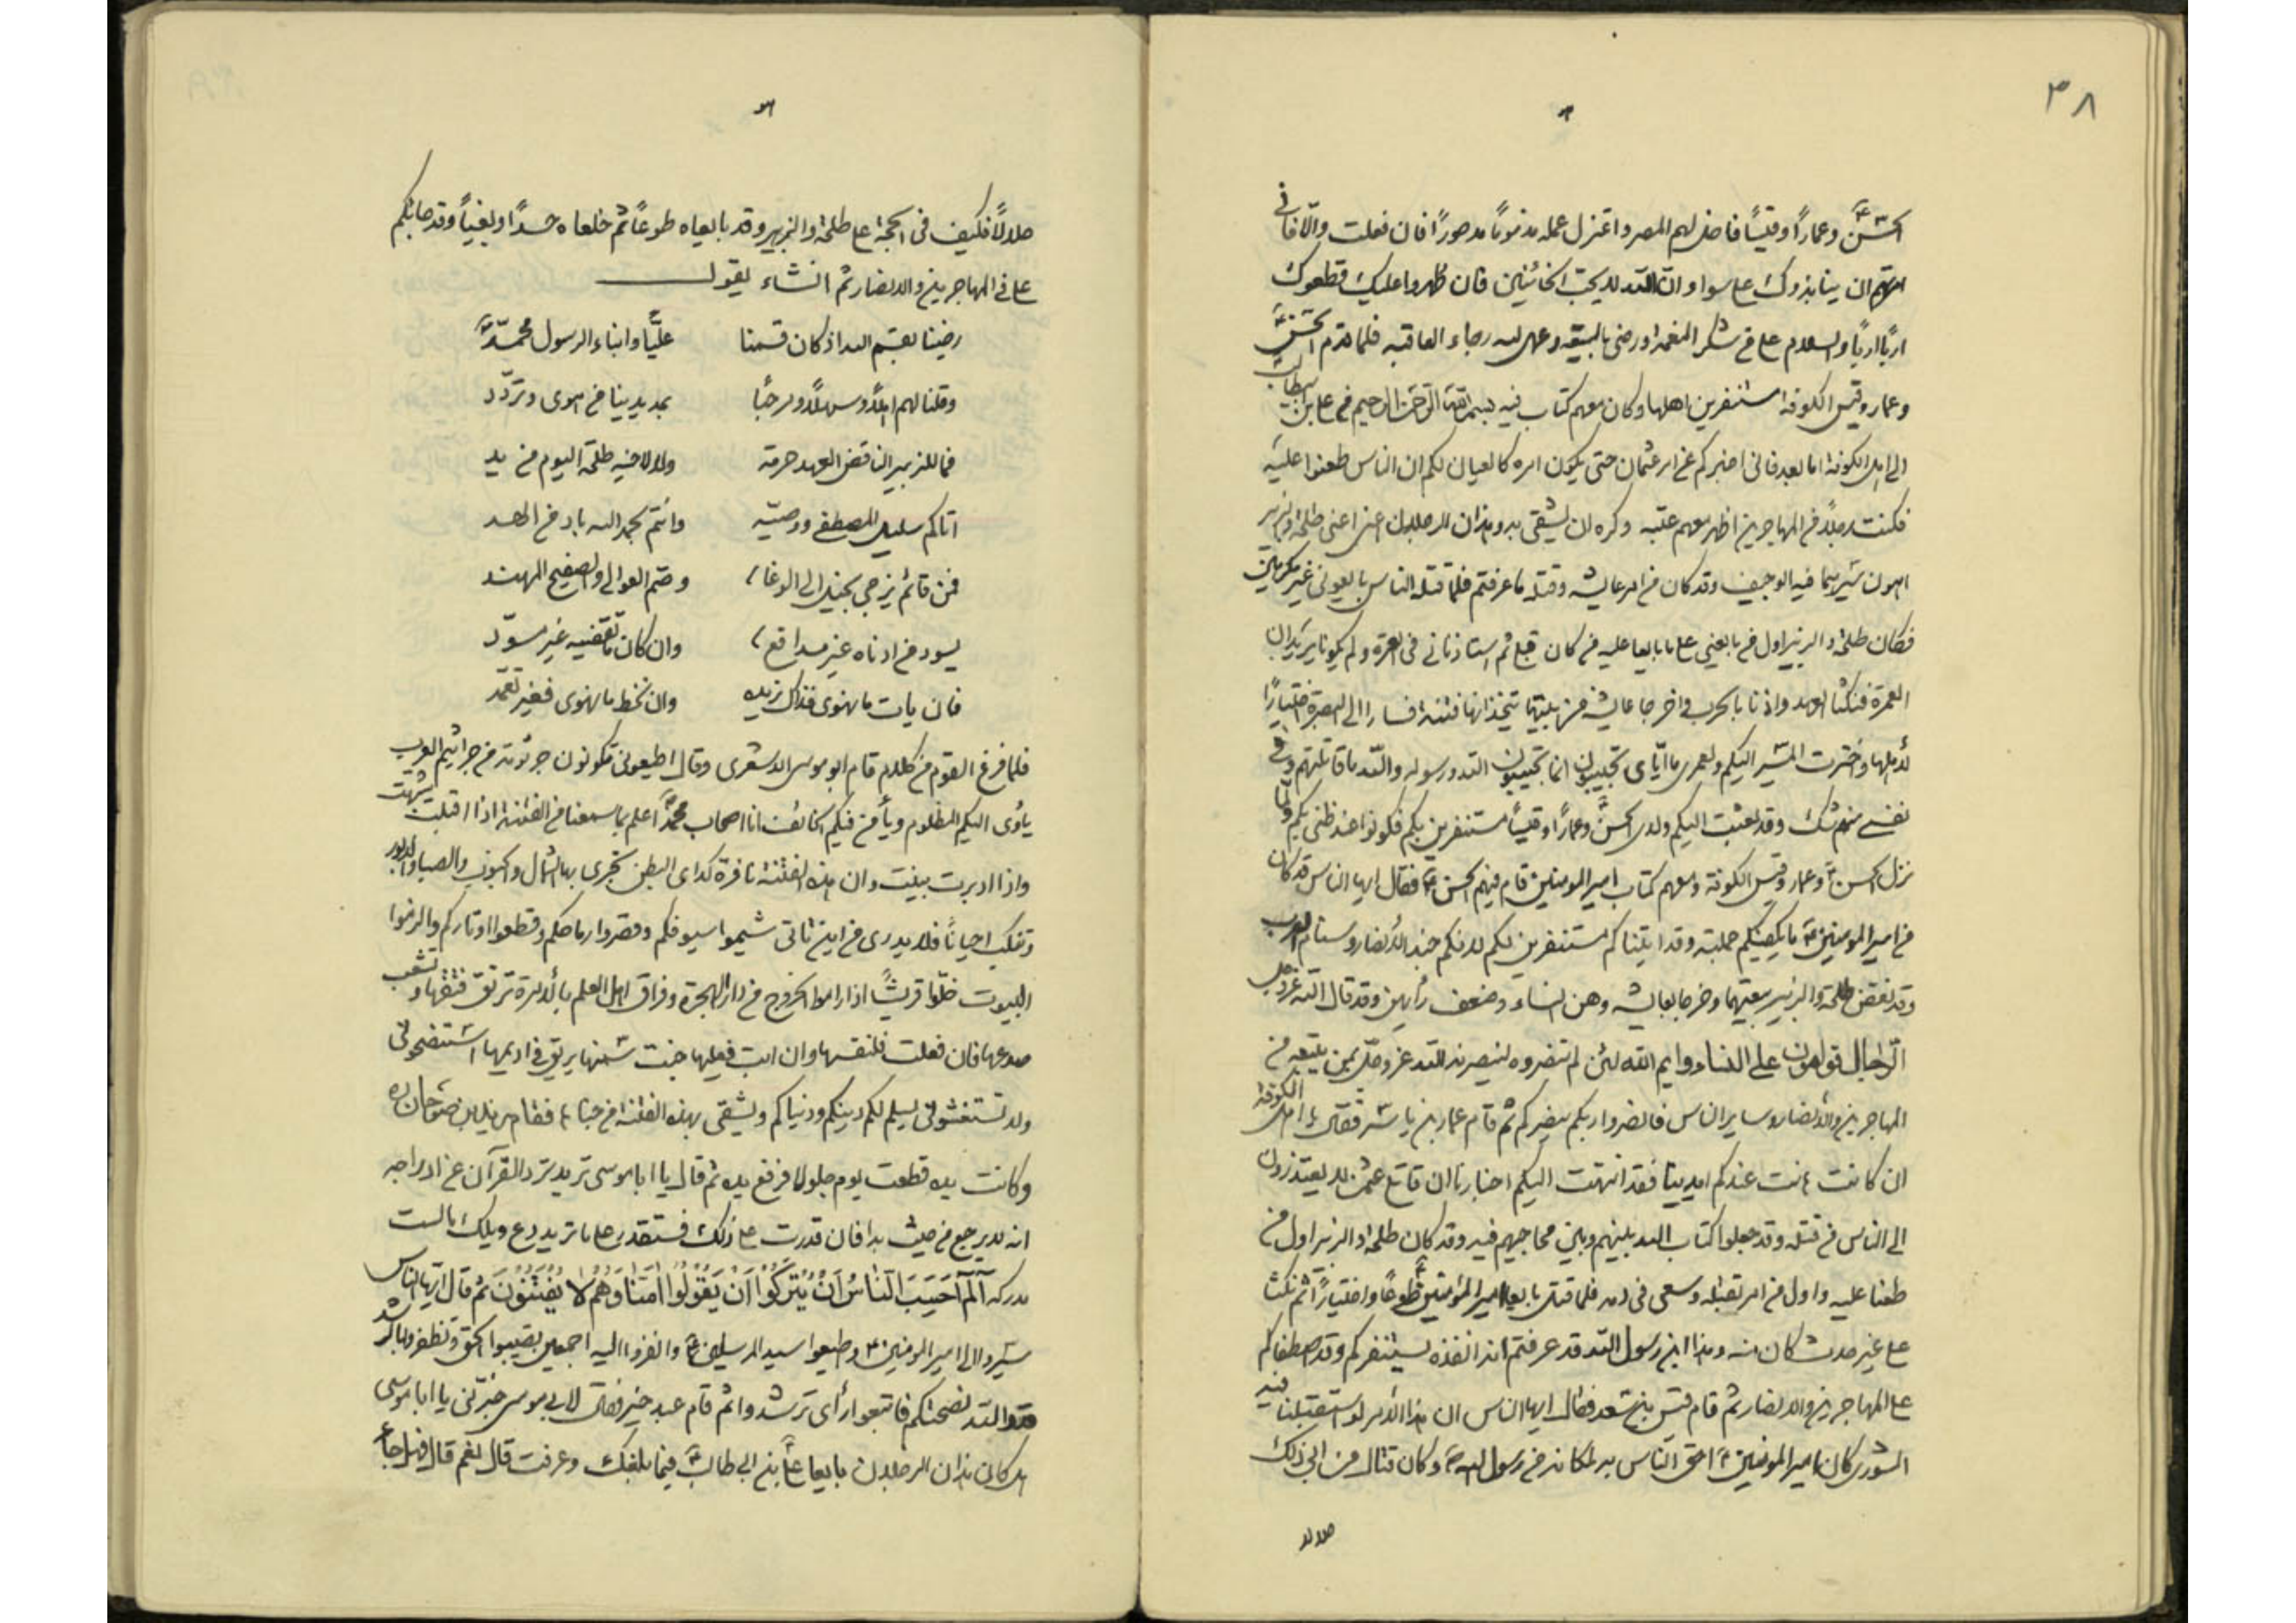 ٣٨
الحسن وعماراً وقيساً فاخل لهم المصر واعتزل عمله مذموماً مدحوراً فان فعلت والّا فانى
امرتهم ان ينابذوك على سواء وان الله لا يحب الخائنين فان ظهروا عليك قطعوك
ارباً ارباً والسلام على من شكر النعمة ورضى بالبيعة وعمل لله رجاء العاقبه فلما قدم الحسن
وعمار وقيس الكوفة مستنفرين اهلها وكان معهم كتاب فيه بسم الله الرحمن الرحيم من على بن ابيطالب
الى اهل الكوفة اما بعد فانى اخبركم عن امر عثمان حتى يكون امره كالعيان لكم ان الناس طعنوا عليه
فكنت رجلاً من المهاجرين اظهر معهم عتبه وكره ان يشقى به وهذان الرجلان اعنى طلحة والزبير
اهون سيرهما فيه الوجيف وقد كان من امر عايشه وقتله ما عرفتم فلما قتله الناس بايعونى غير مكرهين
فكان طلحة والزبير اول من بايعنى على ما بايعا عليه من كان قبلى ثم استاذنانى فى العمرة ولم يكونا يريدان
العمرة فنكثا العهد واذنا بالحرب واخرجا عايشه من بيتها يتخذانها فتنة فسارا الى البصرة اختياراً
لأهلها واخترت المسير اليكم ولعمرى ما ايّاى تجيبون انما تجيبون الله ورسوله والله ما قاتلتهم وفى
نفسى منهم شك وقد بعثت اليكم ولدى الحسن وعماراً وقيساً مستنفرين بكم فكونوا عند ظنى بكم ولمّا
نزل الحسن وعمار وقيس الكوفة ومعهم كتاب امير المومنين قام فيهم الحسن فقال ايها الناس قد كان
من امير المومنين ما يكفيكم جملته وقد اتيناكم مستنفرين لكم لانكم جند الأنصار وسنام العرب
وقد نقض طلحة والزبير بيعتهما وخرجا بعايشه وهن النساء وضعف رأيهن وقد قال الله عز وجل
الرّجال قوامون على النساء وايم الله لئن لم تنصروه لينصرنه الله عز وجل بمن يتبعه من
المهاجرين والأنصار وساير الناس فانصروا ربكم ينصركم ثم قام عمار بن ياسر فقال يا اهل الكوفة
ان كانت عندكم ابداننا فقد انتهت اليكم اخبارنا ان قاتلى عثمن لا يعتذرون
الى الناس من قتله وقد جعلوا كتاب الله بينهم وبين محاجيهم فيه وقد كان طلحة والزبير اول من
طعنا عليه واول من امر بقتله وسعى فى دمه فلما قتل بايعا امير المؤمنين طوعاً واختياراً ثم نكثا
على غير حدث كان منه وهذا ابن رسول الله قد عرفتم انه انفذه يستنفركم وقد اصطفاكم
على المهاجرين والانصار ثم قام قيس بن سعد فقال ايها الناس ان هذا الأمر لو استقبلنا فيه
الشورى كان امير المومنين احق الناس به لمكانه من رسول الله وكان قتال من ابى ذلك
حلالا
حلالاً فكيف فى الحجة على طلحة والزبير وقد بايعاه طوعاً ثم خلعاه حسداً وبغياً وقد جائكم
على فى المهاجرين والانصار ثم انشاء يقول
رضينا بقسم الله اذ كان قسمنا علياً وابناء الرسول محمّد
وقلنا لهم اهلاً وسهلاً ومرحباً نمد يدينا من هوى وتردّد
فما للزبير الناقض العهد حرمة ولا لاخيه طلحة اليوم من يد
اتاكم سليل المصطفى ووصيّه وانتم بحمد الله باد من العد
فمن قائم يزجى بخيل الى الوغا وصم العوالى والصفيح المهند
يسود من ادناه غير مدافع وان كان ما نقضيه غير مسوّد
فان يات ما نهوى فذاك نريده وان نخط ما نهوى فغير تعمّد
فلما فرغ القوم من كلام قام ابو موسى الاشعرى وقال اطيعونى تكونون جرثومة من جراثيم العرب
يأوى اليكم المظلوم ويأمن فيكم الخائف انا اصحاب محمد اعلم بما سمعنا من الفتنة اذا اقبلت شبهت
واذا ادبرت بينت وان هذه الفتنة نافرة كداى البطن تجرى بها الشمال والجنوب والصبا والدبور
وتنكب احياناً فلا يدرى من اين تاتى شيموا سيوفكم وقصروا رماحكم وقطعوا اوتاركم والزموا
البيوت خلّوا قريشاً اذا راموا الخروج من دار الهجرة وفراق اهل العلم بالأمرة ترتق فتقها وتشعب
صدعها فان فعلت فلنفسها وان ابت فعليها جنت سمنها يريق فى اديمها استنصحونى
ولا تستغشونى يسلم لكم دينكم ودنياكم ويشقى بهذه الفتنة من جناها فقام زيد بن صوحان ره
وكانت يده قطعت يوم جلولا فرفع يده ثم قال يا ابا موسى تريد ترد الفرآن عن ادراجه
انه لا يرجع من حيث بدا فان قدرت على ذلك فستقدر على ما تريد دع ويلك ما لست
مدركه آلم احسب الناس ان يتركوا ان يقولوا آمنا وهم لا يفتنون ثم قال ايها الناس
سيروا الى امير المومنين واطيعوا سيد المرسلين وانفروا اليه اجمعين تصيبوا الحق وتظفروا بالرشد
فقد والله نصحتكم فاتبعوا رأى ترشدوا ثم قام عبد خير فقال لابى موسى خبّرنى يا ابا موسى
هل كان هذان الرجلان بايعا على بن ابى طالب فيما بلغك وعرفت قال نعم قال فهل جاء